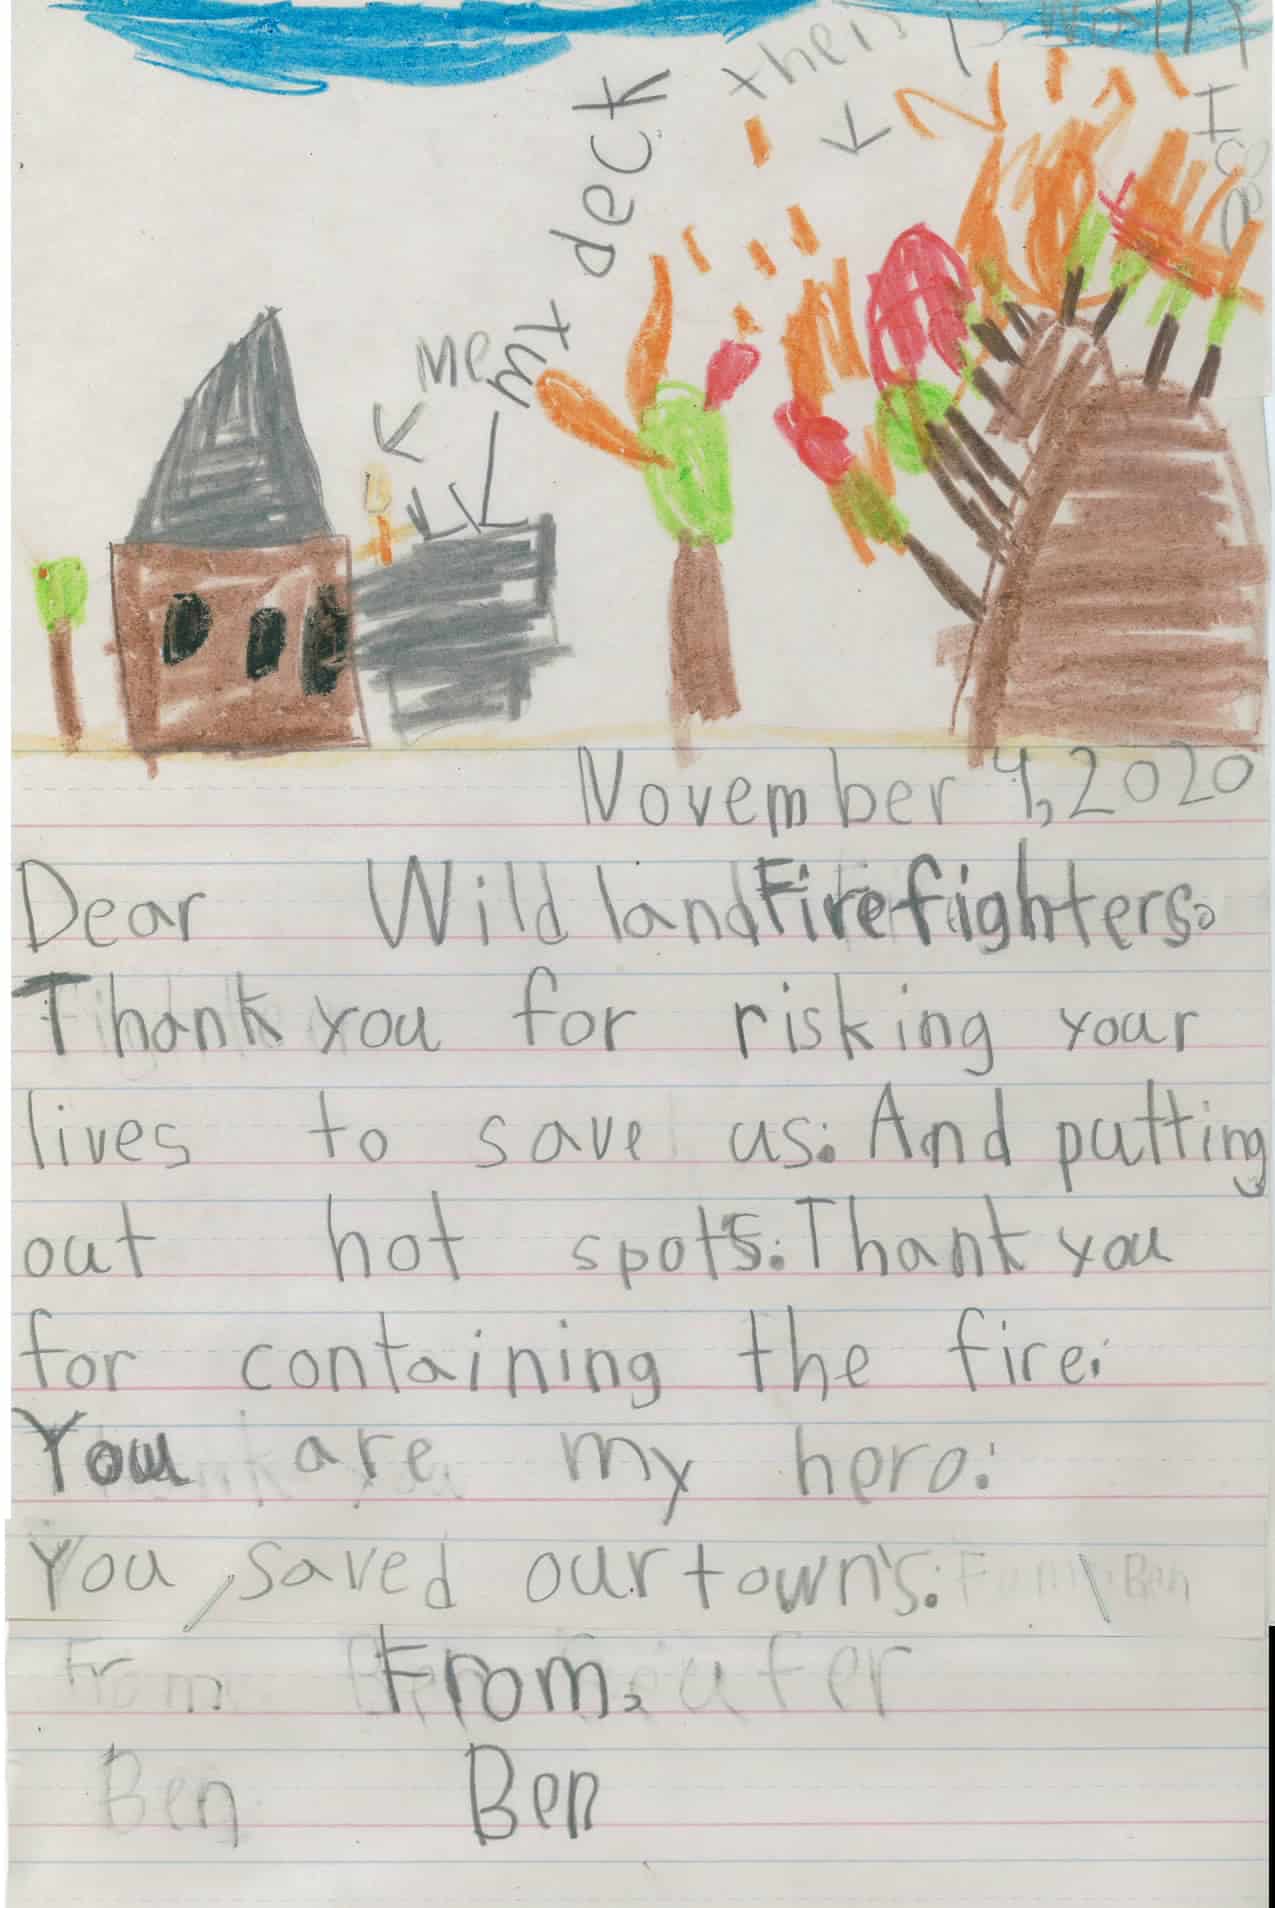 I
deck
my
me
November 4, 2020
Dear Wildland Firefighters,
Thank you for risking your
lives to save us. And putting
out hot spots. Thank you
for containing the fire.
You are my hero.
You, saved our town's.
From,
Ben